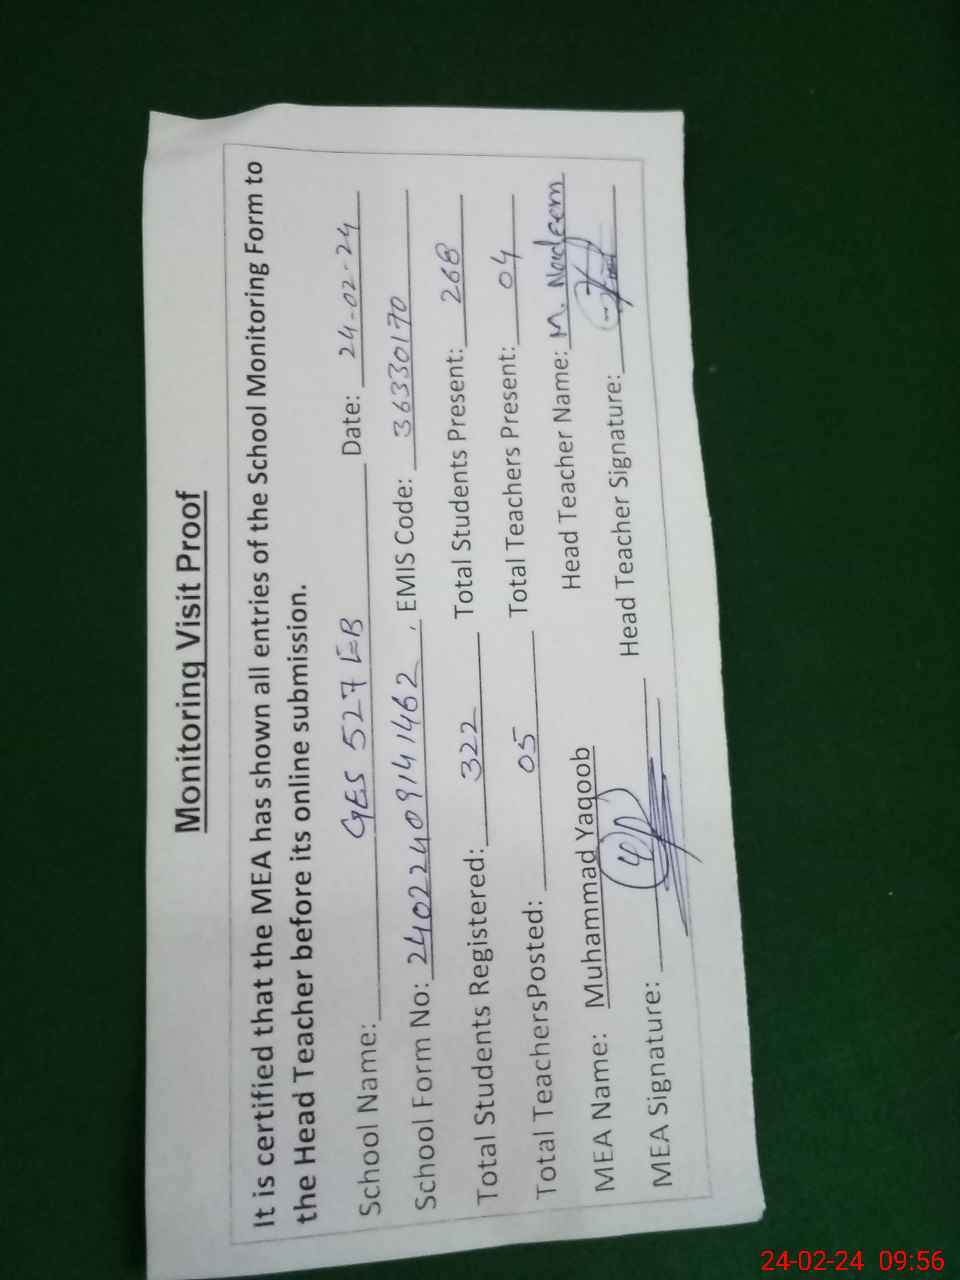 Monitoring Visit Proof
It is certified that the MEA has shown all entries of the School Monitoring Form to
the Head Teacher before its online submission.
School Name: GES 527 EB Date: 24-02-24
School Form No: 24022409141462, EMIS Code: 36330170
Total Students Registered: 322 Total Students Present: 268
Total TeachersPosted: 05 Total Teachers Present: 04
MEA Name: Muhammad Yaqoob Head Teacher Name: M. Nadeem
MEA Signature: Head Teacher Signature:
24-02-24 09:56